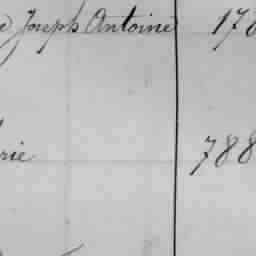 e Joseph Antoine 178
rie 788